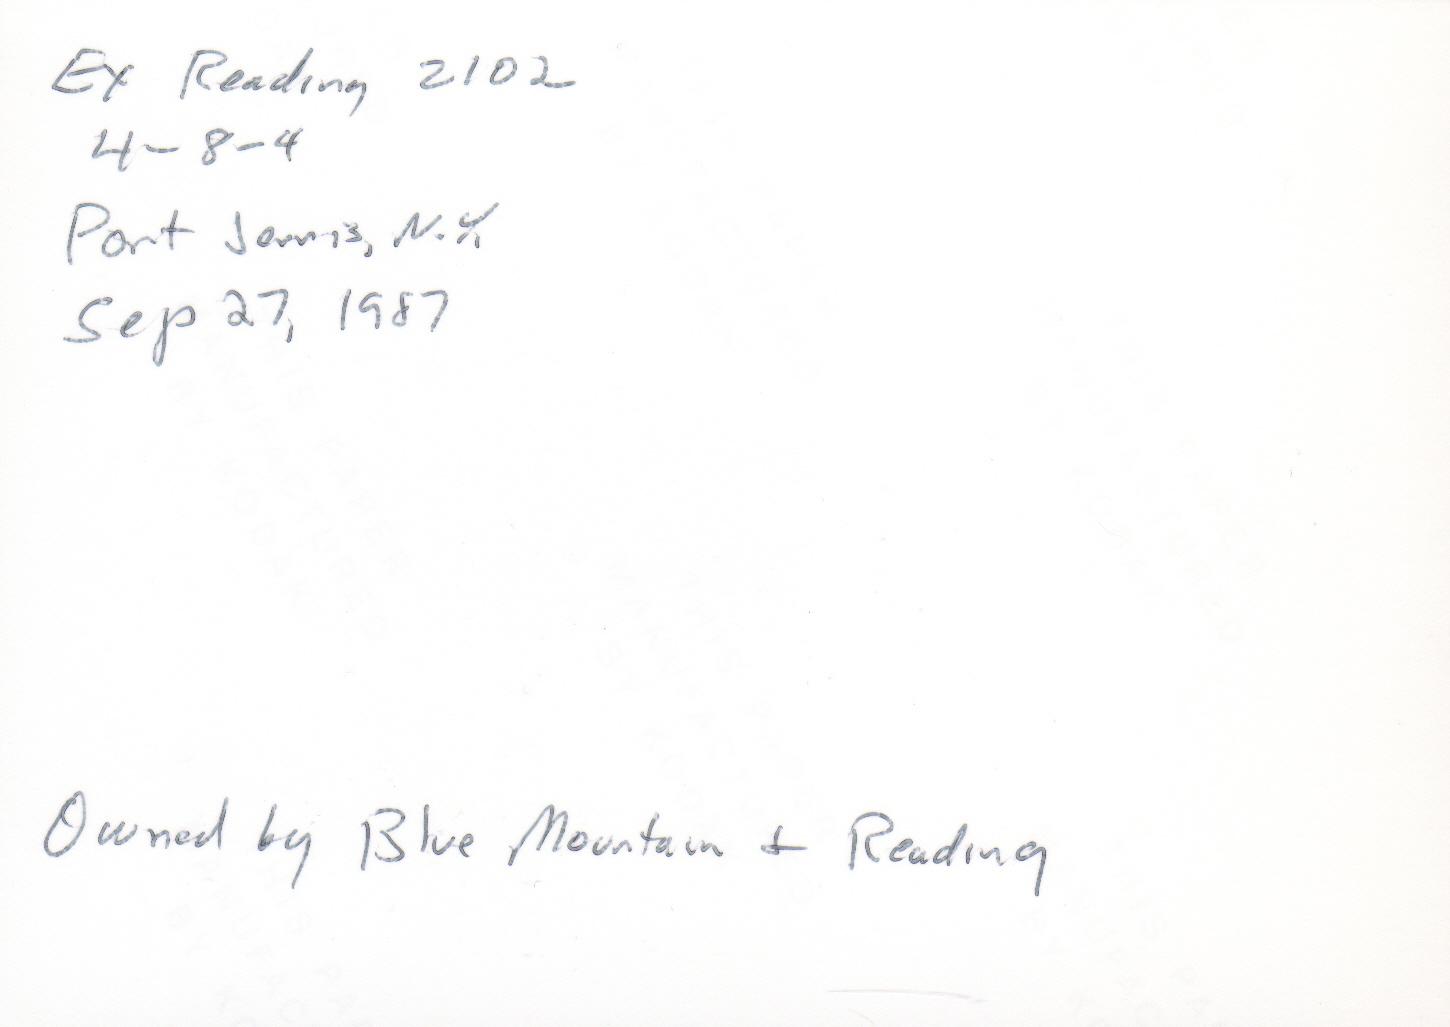 Ex Reading 2102
4-8-4
Port Jervis, N.Y.
Sep 27, 1987
Owned by Blue Mountain & Reading